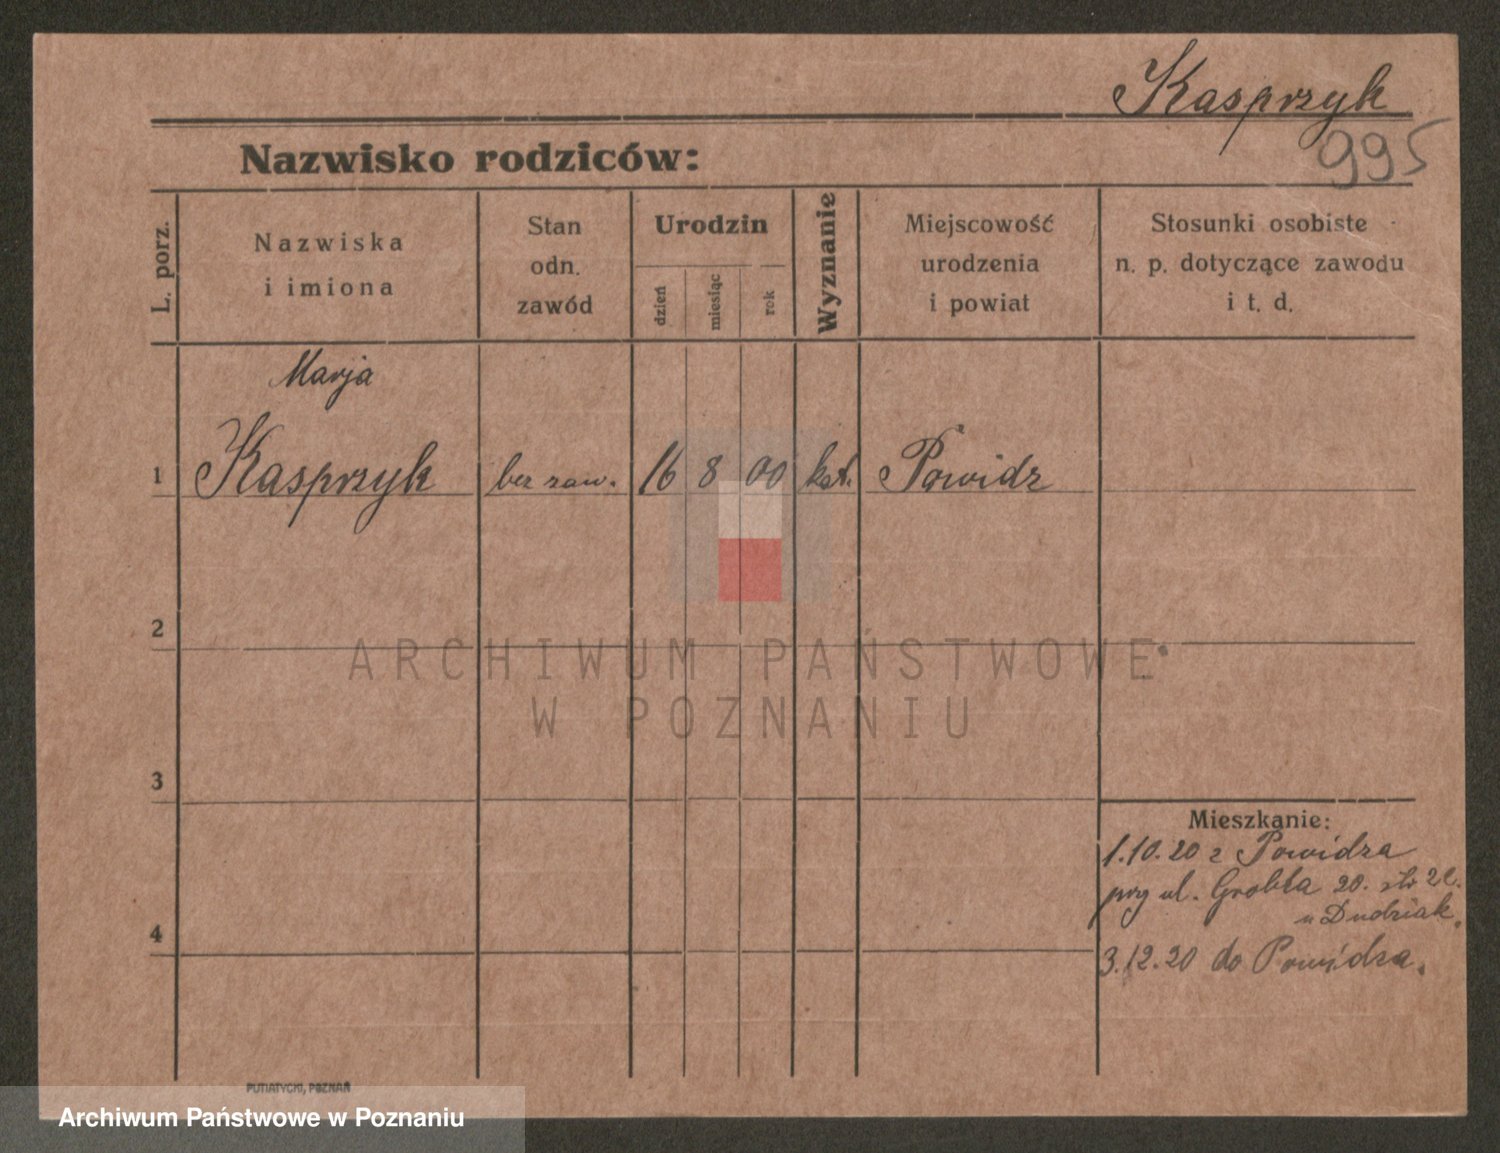 Kasprzyk
995
Nazwisko rodziców:
L. porz.
Nazwiska
i imiona
Stan
odn.
zawód
Urodzin
dzień
miesiąc
rok
Wyznanie
Miejscowość
urodzenia
i powiat
Stosunki osobiste
n. p. dotyczące zawodu
i t. d.
Marja
1 Kasprzyk bez zaw. 16 8 00 kat. Powidz
2
ARCHIWUM PAŃSTWOWE
W POZNANIU
3
Mieszkanie:
1.10.20 z Powidza
przy ul. Grobla 20.
u Dudziak.
4
3.12.20 do Powidza.
PUTIATYCKI, POZNAŃ
Archiwum Państwowe w Poznaniu